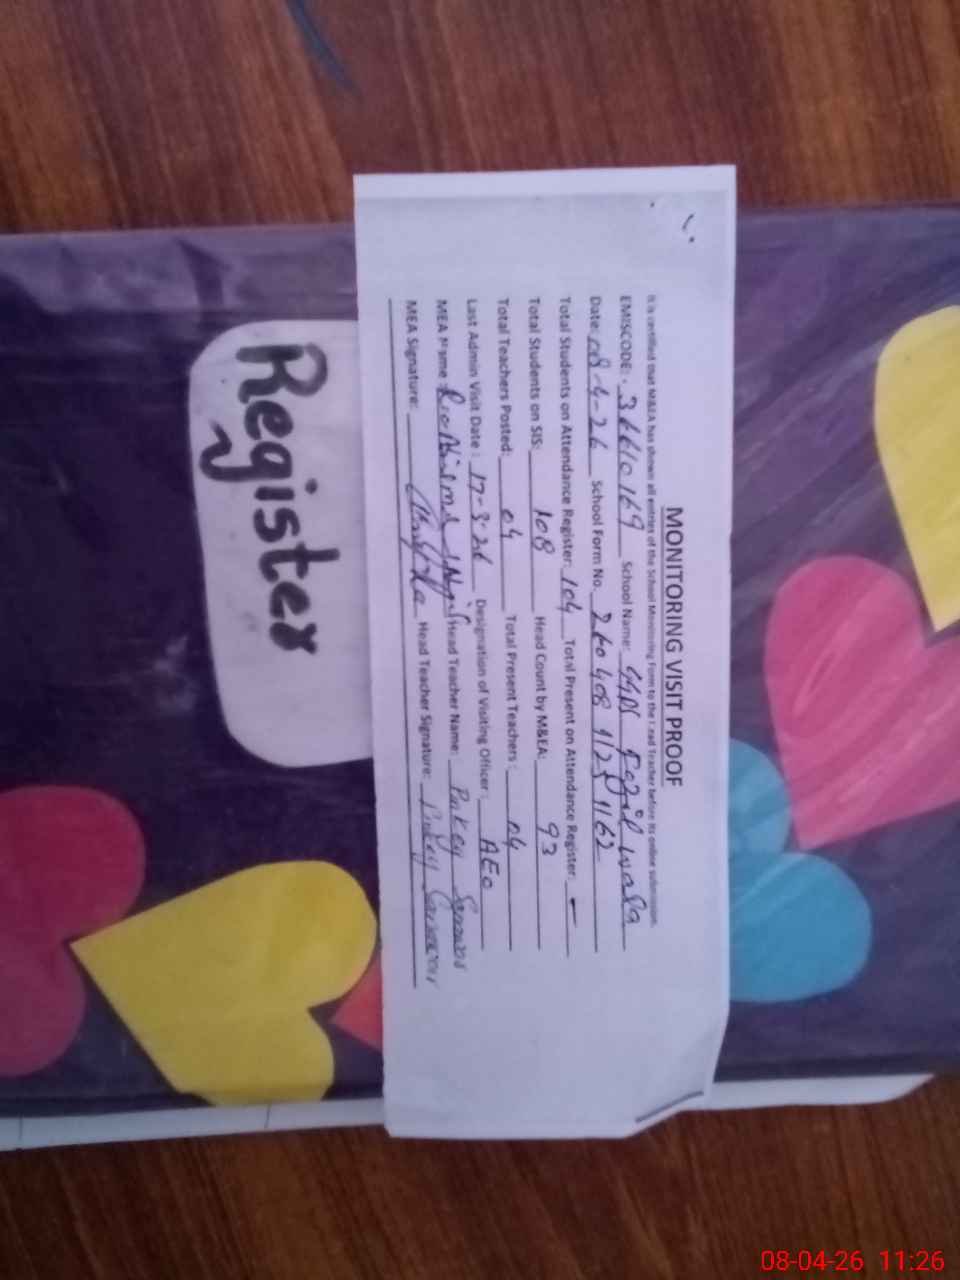 MONITORING VISIT PROOF
It is certified that M&EA has shown all entries of the School Monitoring Form to the Head Teacher before its online submission.
EMISCODE: 36610169 School Name: GGPS Fazil Wala
Date: 08-4-26 School Form No. 26040811251162
Total Students on Attendance Register: 104 Total Present on Attendance Register: -
Total Students on SIS: 108 Head Count by M&EA: 93
Total Teachers Posted: 04 Total Present Teachers: 04
Last Admin Visit Date: 17-3-26 Designation of Visiting Officer: AEO
MEA Name: Head Teacher Name:
MEA Signature: Head Teacher Signature:
Register
08-04-26 11:26